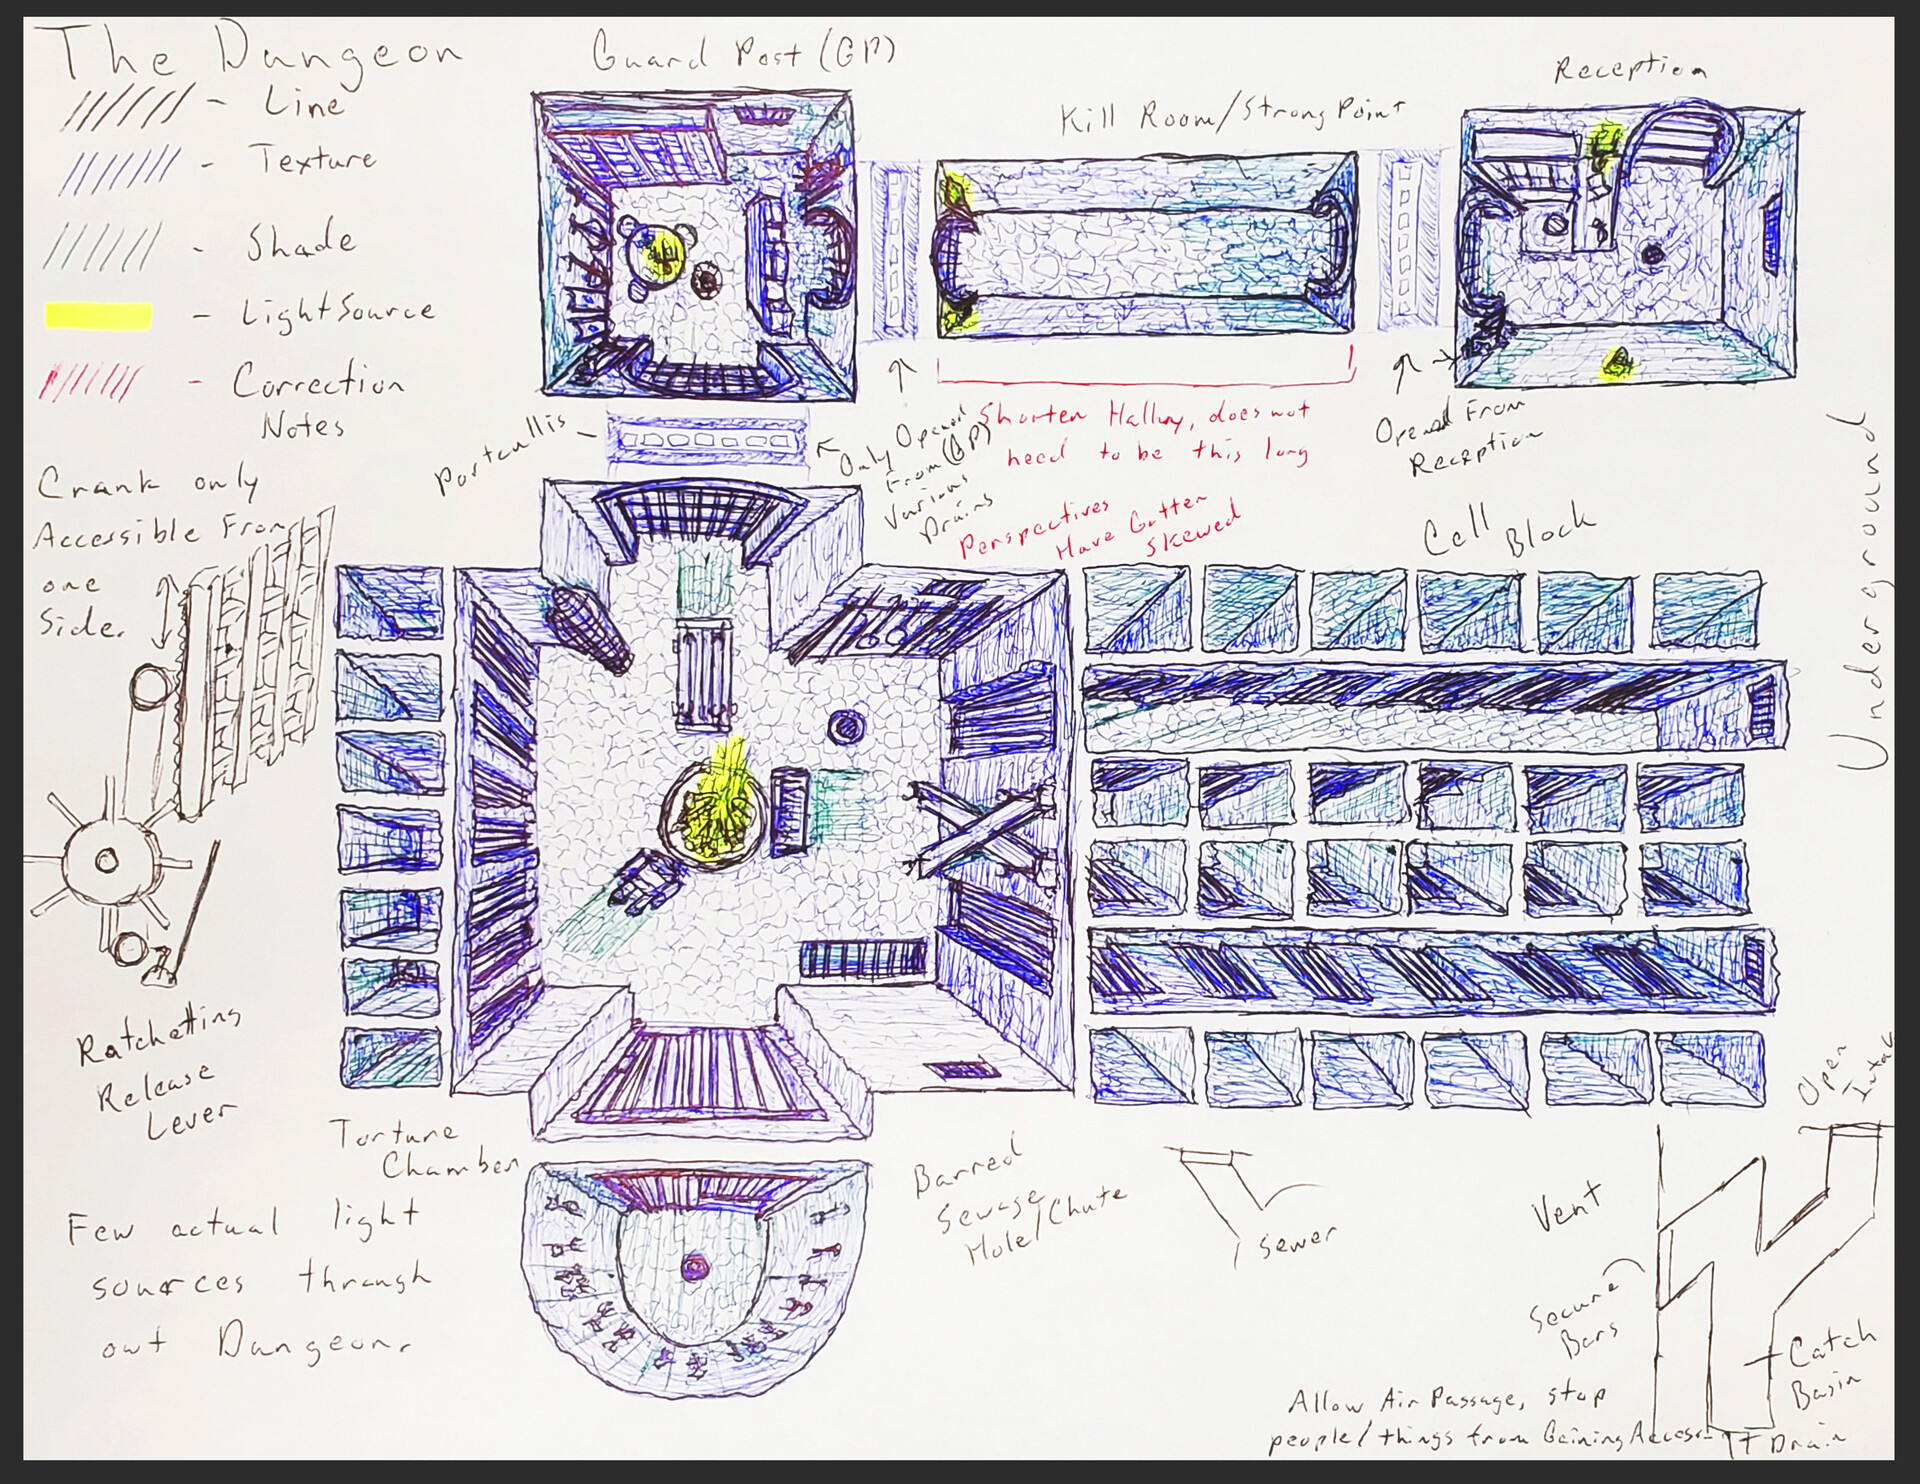 The Dungeon
- Line
- Texture
- Shade
- LightSource
- Correction
Notes
Guard Post (GP)
Kill Room/Strong Point
Reception
Portcullis
Only Opened
From (GP)
Various
Drains
Shorten Hallwy, does not
need to be this long
Perspectives
Have Gotten
Skewed
Opened From
Reception
Cell Block
Underground
Crank only
Accessible From
one
Side.
Ratchetting
Release
Lever
Torture
Chamber
Few actual light
sources through
out Dungeon.
Barred
Sewage
Hole/Chute
Sewer
Vent
Open
Secure
Bars
Catch
Basin
Drain
Allow Air Passage, stop
people/things from Gaining Access